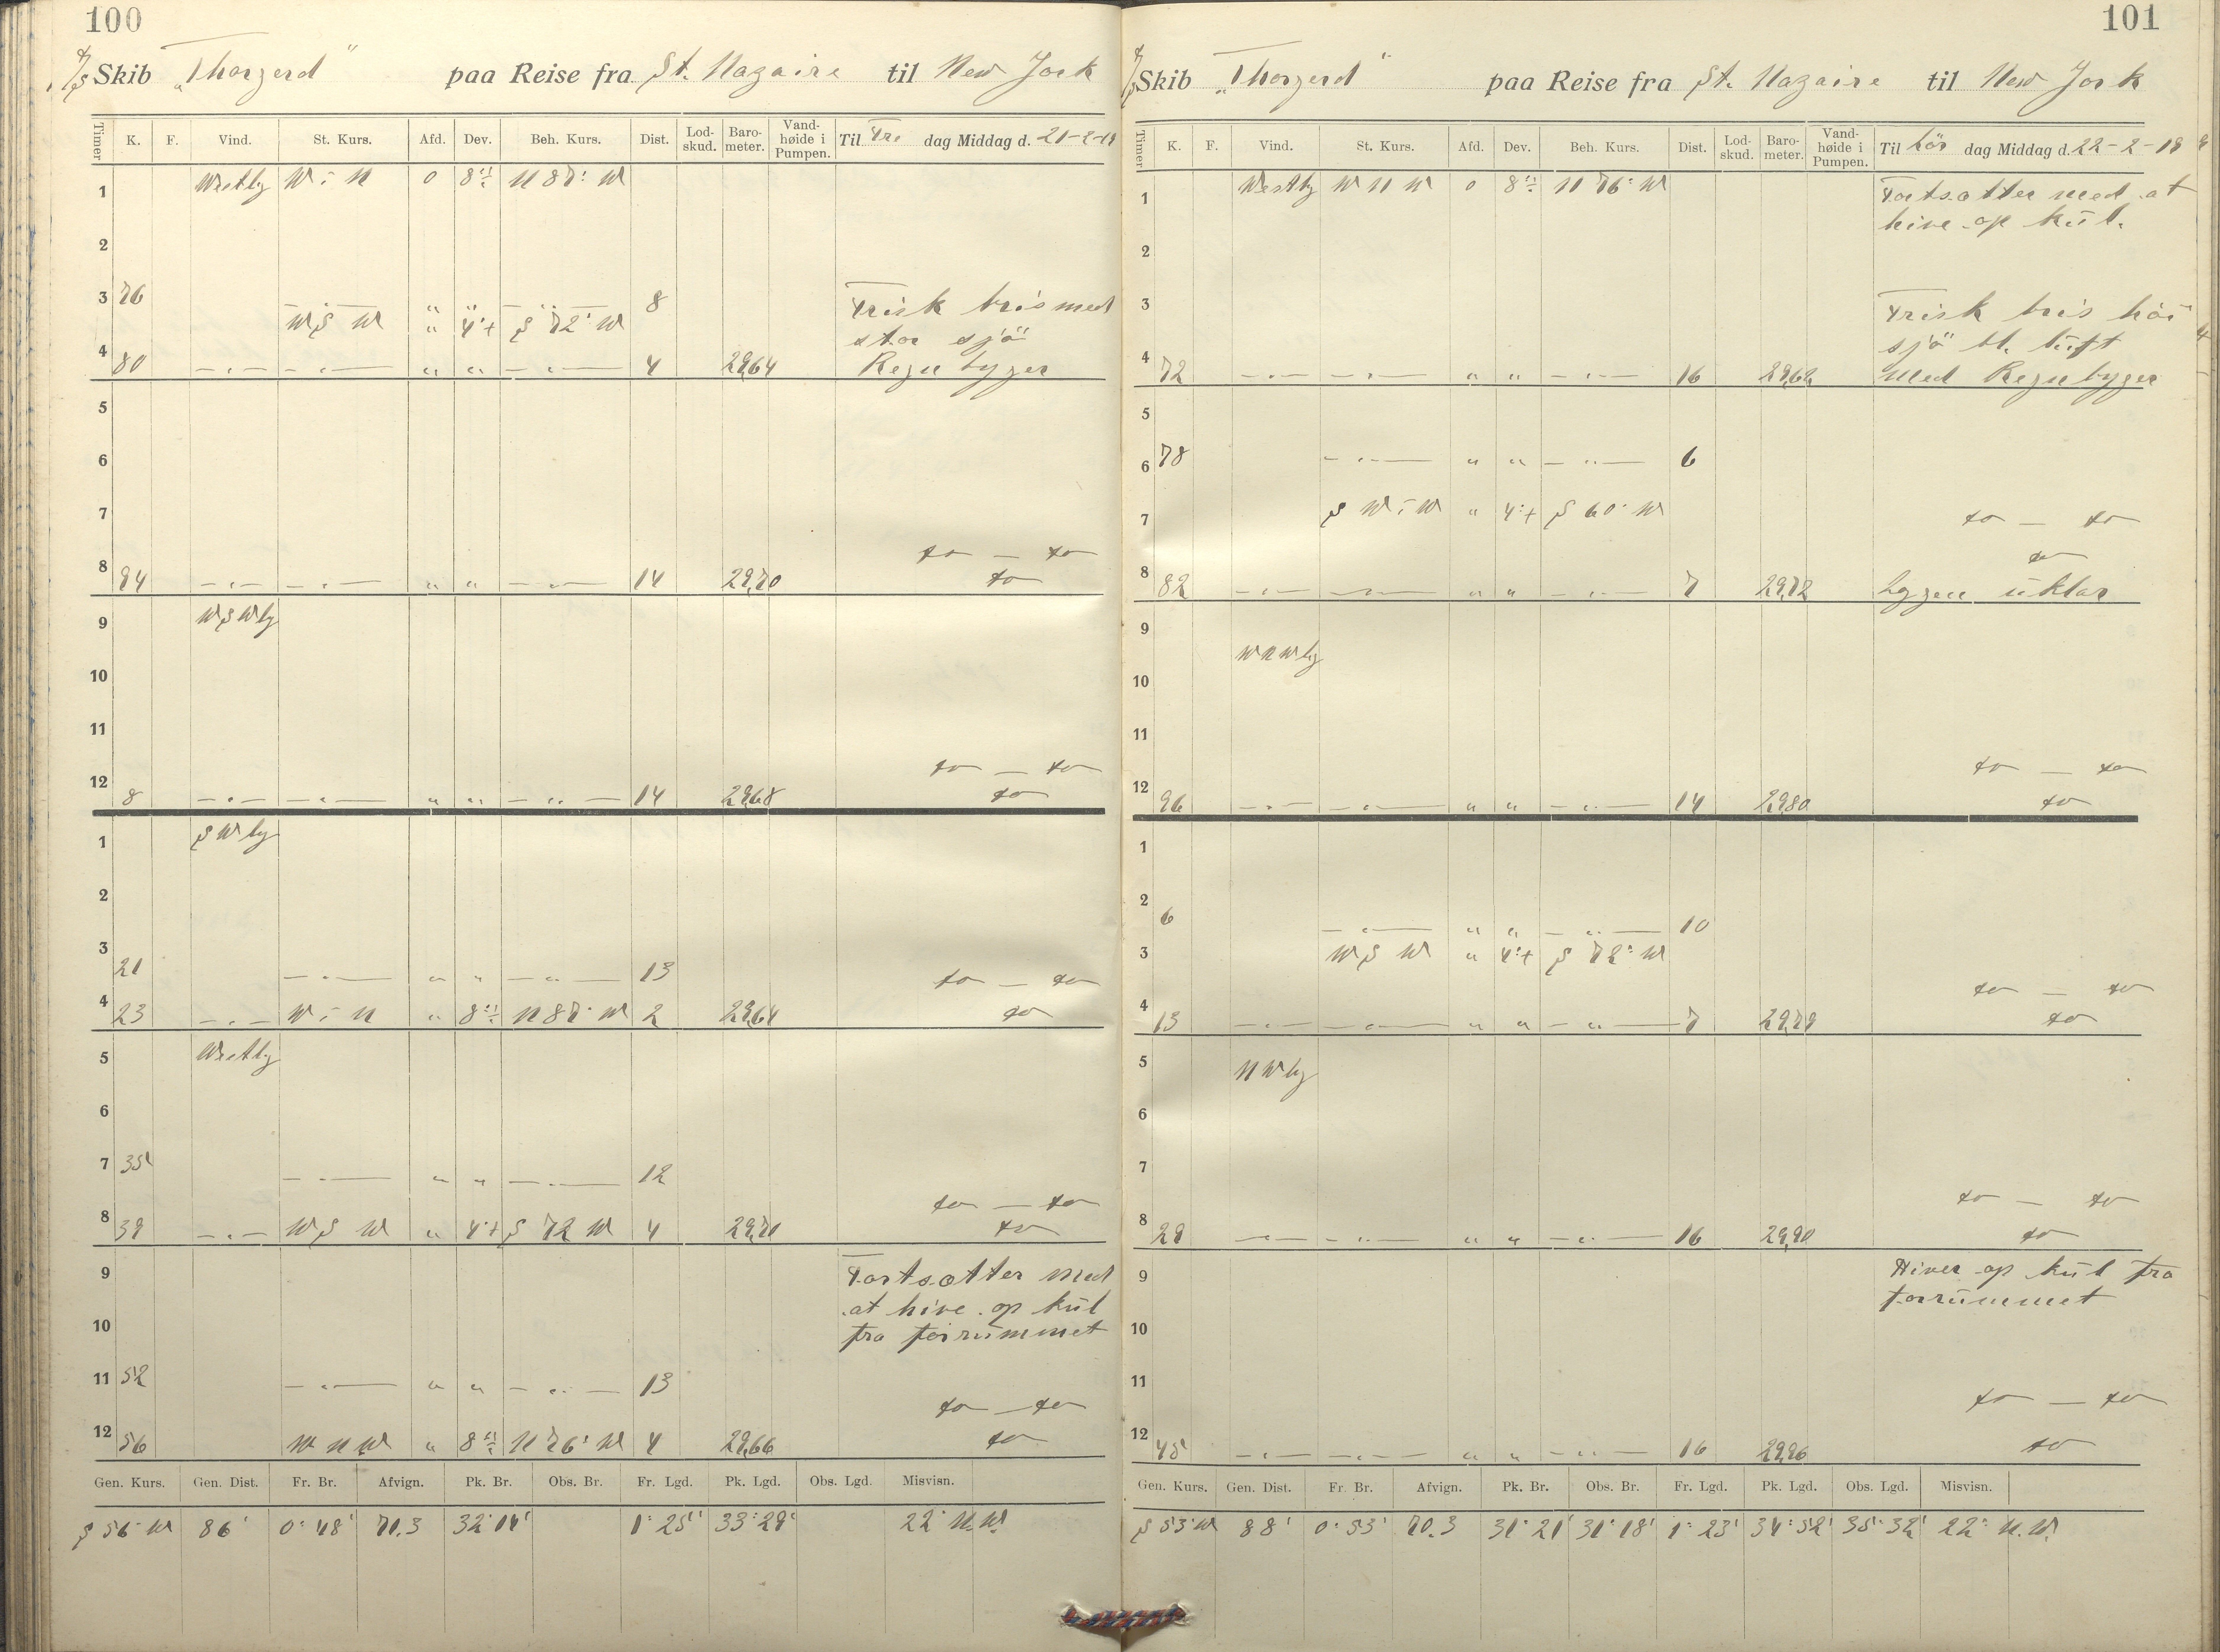 100
D/S Skib „Thorgerd" paa Reise fra St. Nazaire til New York
Timer K. F. Vind. St. Kurs. Afd. Dev. Beh. Kurs. Dist. Lod-skud. Baro-meter. Vand-høide i Pumpen. Til Fre dag Middag d. 21-2-19
1 Westlg W - N 0 8° ÷ N 87° W
2
3 76 — " — " " — " — 8 Frisk bris med
W S W " 4° + S 72° W stor sjö
4 80 — " — — " — " " — " — 4 29,64 Regn byger
5
6
7
do — do
8 94 — " — — " — " " — " — 14 29,70 do
9 WSWlg
10
11
do — do
12 8 — " — — " — " " — " — 14 29,68 do
1 SWlg
2
3 21 — " — " " — " — 13 do — do
4 23 — " — W - N " 8° ÷ N 87° W 2 29,64 do
5 Westlg
6
7 35 — " — " " — " — 12
do — do
8 39 — " — W S W " 4° + S 72 W 4 29,70 do
9 Fortsætter med
at hive op kul
10 fra forrummet
11 52 — " — " " — " — 13
do — do
12 56 W N W " 8° ÷ N 76° W 4 29,66 do
Gen. Kurs. Gen. Dist. Fr. Br. Afvign. Pk. Br. Obs. Br. Fr. Lgd. Pk. Lgd. Obs. Lgd. Misvisn.
S 56° W 86' 0° 48' 71.3 32° 14' 1° 25' 33° 29' 22° N.W.
101
D/S Skib „Thorgerd" paa Reise fra St. Nazaire til New York
Timer K. F. Vind. St. Kurs. Afd. Dev. Beh. Kurs. Dist. Lod-skud. Baro-meter. Vand-høide i Pumpen. Til Lör dag Middag d. 22-2-19
1 Westlg W N W 0 8° ÷ N 76° W Fortsætter med at
hive op kul.
2
3 Frisk bris höi
sjö bl. luft
4 72 — " — — " — " " — " — 16 29,62 med Regnbyger
5
6 78 — " — " " — " — 6
7 S W - W " 4° + S 60° W do — do
do
8 82 — " — — " — " " — " — 7 29,72 Lygten uklar
9
WNWlg
10
11
do — do
12 96 — " — — " — " " — " — 14 29,80 do
1
2 6 — " — " " — " — 10
3 W S W " 4° + S 72° W
do — do
4 13 — " — — " — " " — " — 7 29,79 do
5 NWlg
6
7
do — do
8 29 — " — — " — " " — " — 16 29,90 do
9 Hiver op kul fra
forrummet
10
11 do — do
12 45 — " — — " — " " — " — 16 29,96 do
Gen. Kurs. Gen. Dist. Fr. Br. Afvign. Pk. Br. Obs. Br. Fr. Lgd. Pk. Lgd. Obs. Lgd. Misvisn.
S 53° W 88' 0° 53' 70.3 31° 21' 31° 18' 1° 23' 34° 52' 35° 32' 22° N.W.